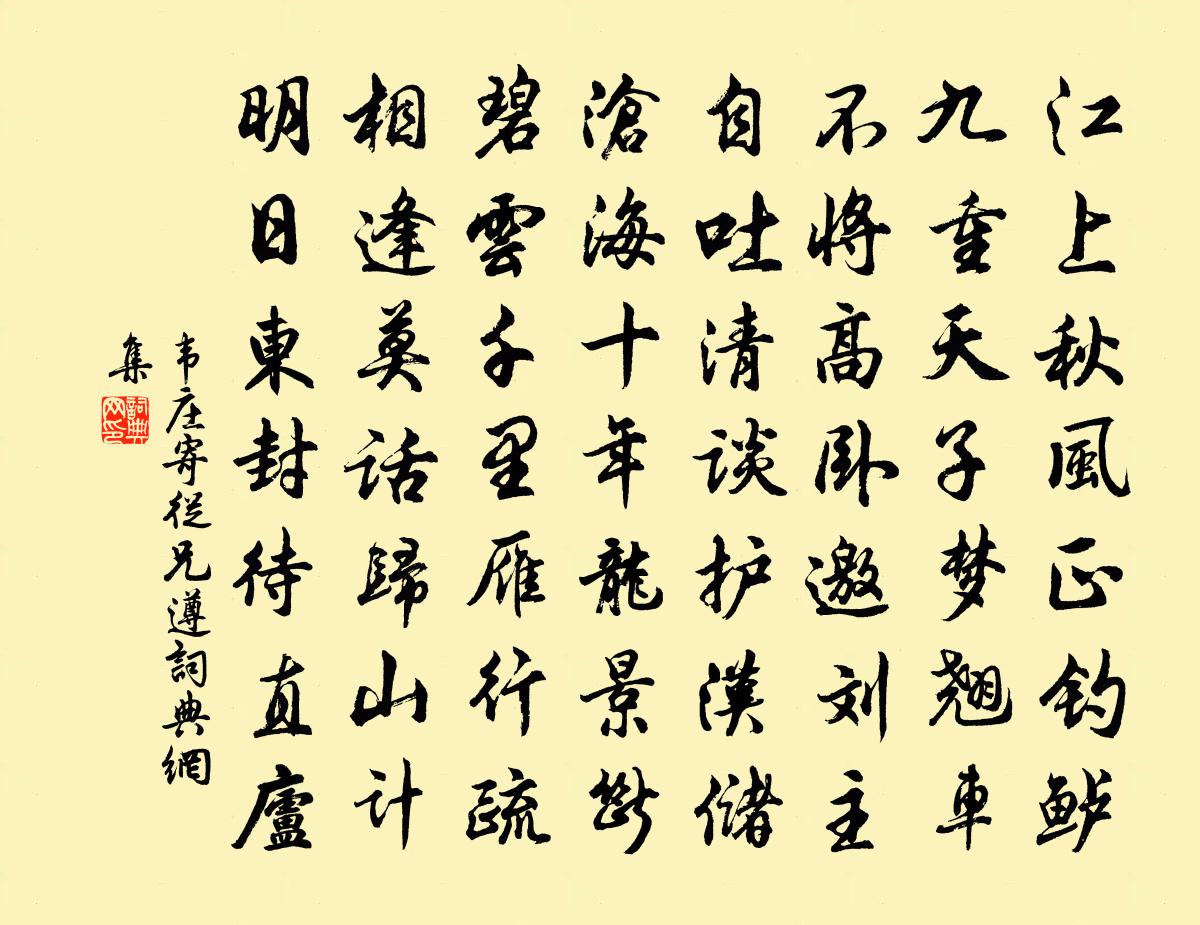 江上秋風正钓鲈
九重天子梦翘車
不将高卧邀刘主
自吐清谈护漢儲
滄海十年龍景断
碧雲千里雁行疏
相逢莫话歸山计
明日東封待直廬
韦庄寄從兄遵詞典網
集
詞典
网印